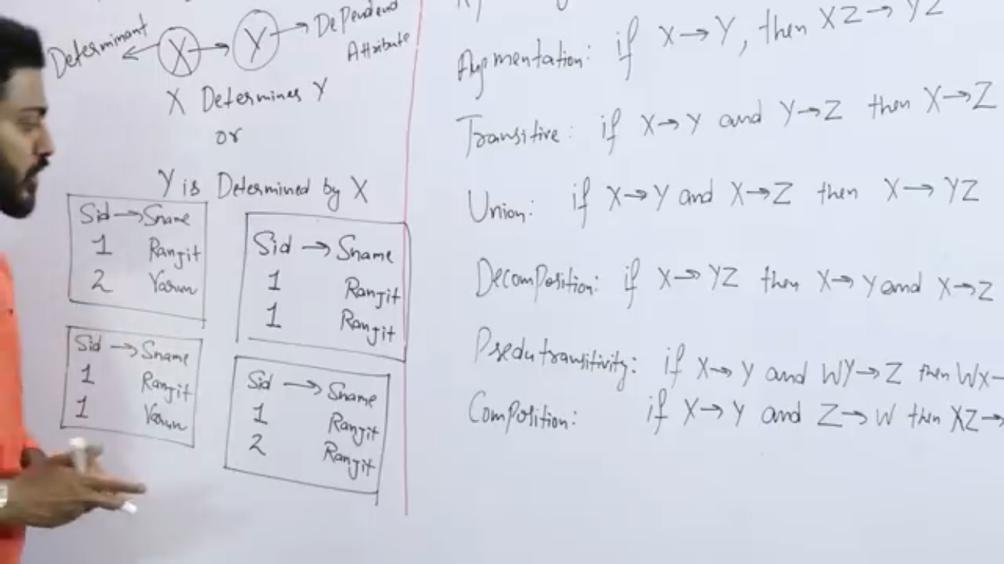 Determinant X → Y → Dependend
Attribute
X Determines Y
or
Y is Determined by X
Sid → Sname
1 Ranjit
2 Varun
Sid → Sname
1 Ranjit
1 Ranjit
Sid → Sname
1 Ranjit
1 Varun
Sid → Sname
1 Ranjit
2 Ranjit
Augmentation: if X→Y, then XZ→YZ
Transitive: if X→Y and Y→Z then X→Z
Union: if X→Y and X→Z then X→YZ
Decomposition: if X→YZ then X→Y and X→Z
Psedutransitivity: if X→Y and WY→Z then WX→
Composition: if X→Y and Z→W then XZ→